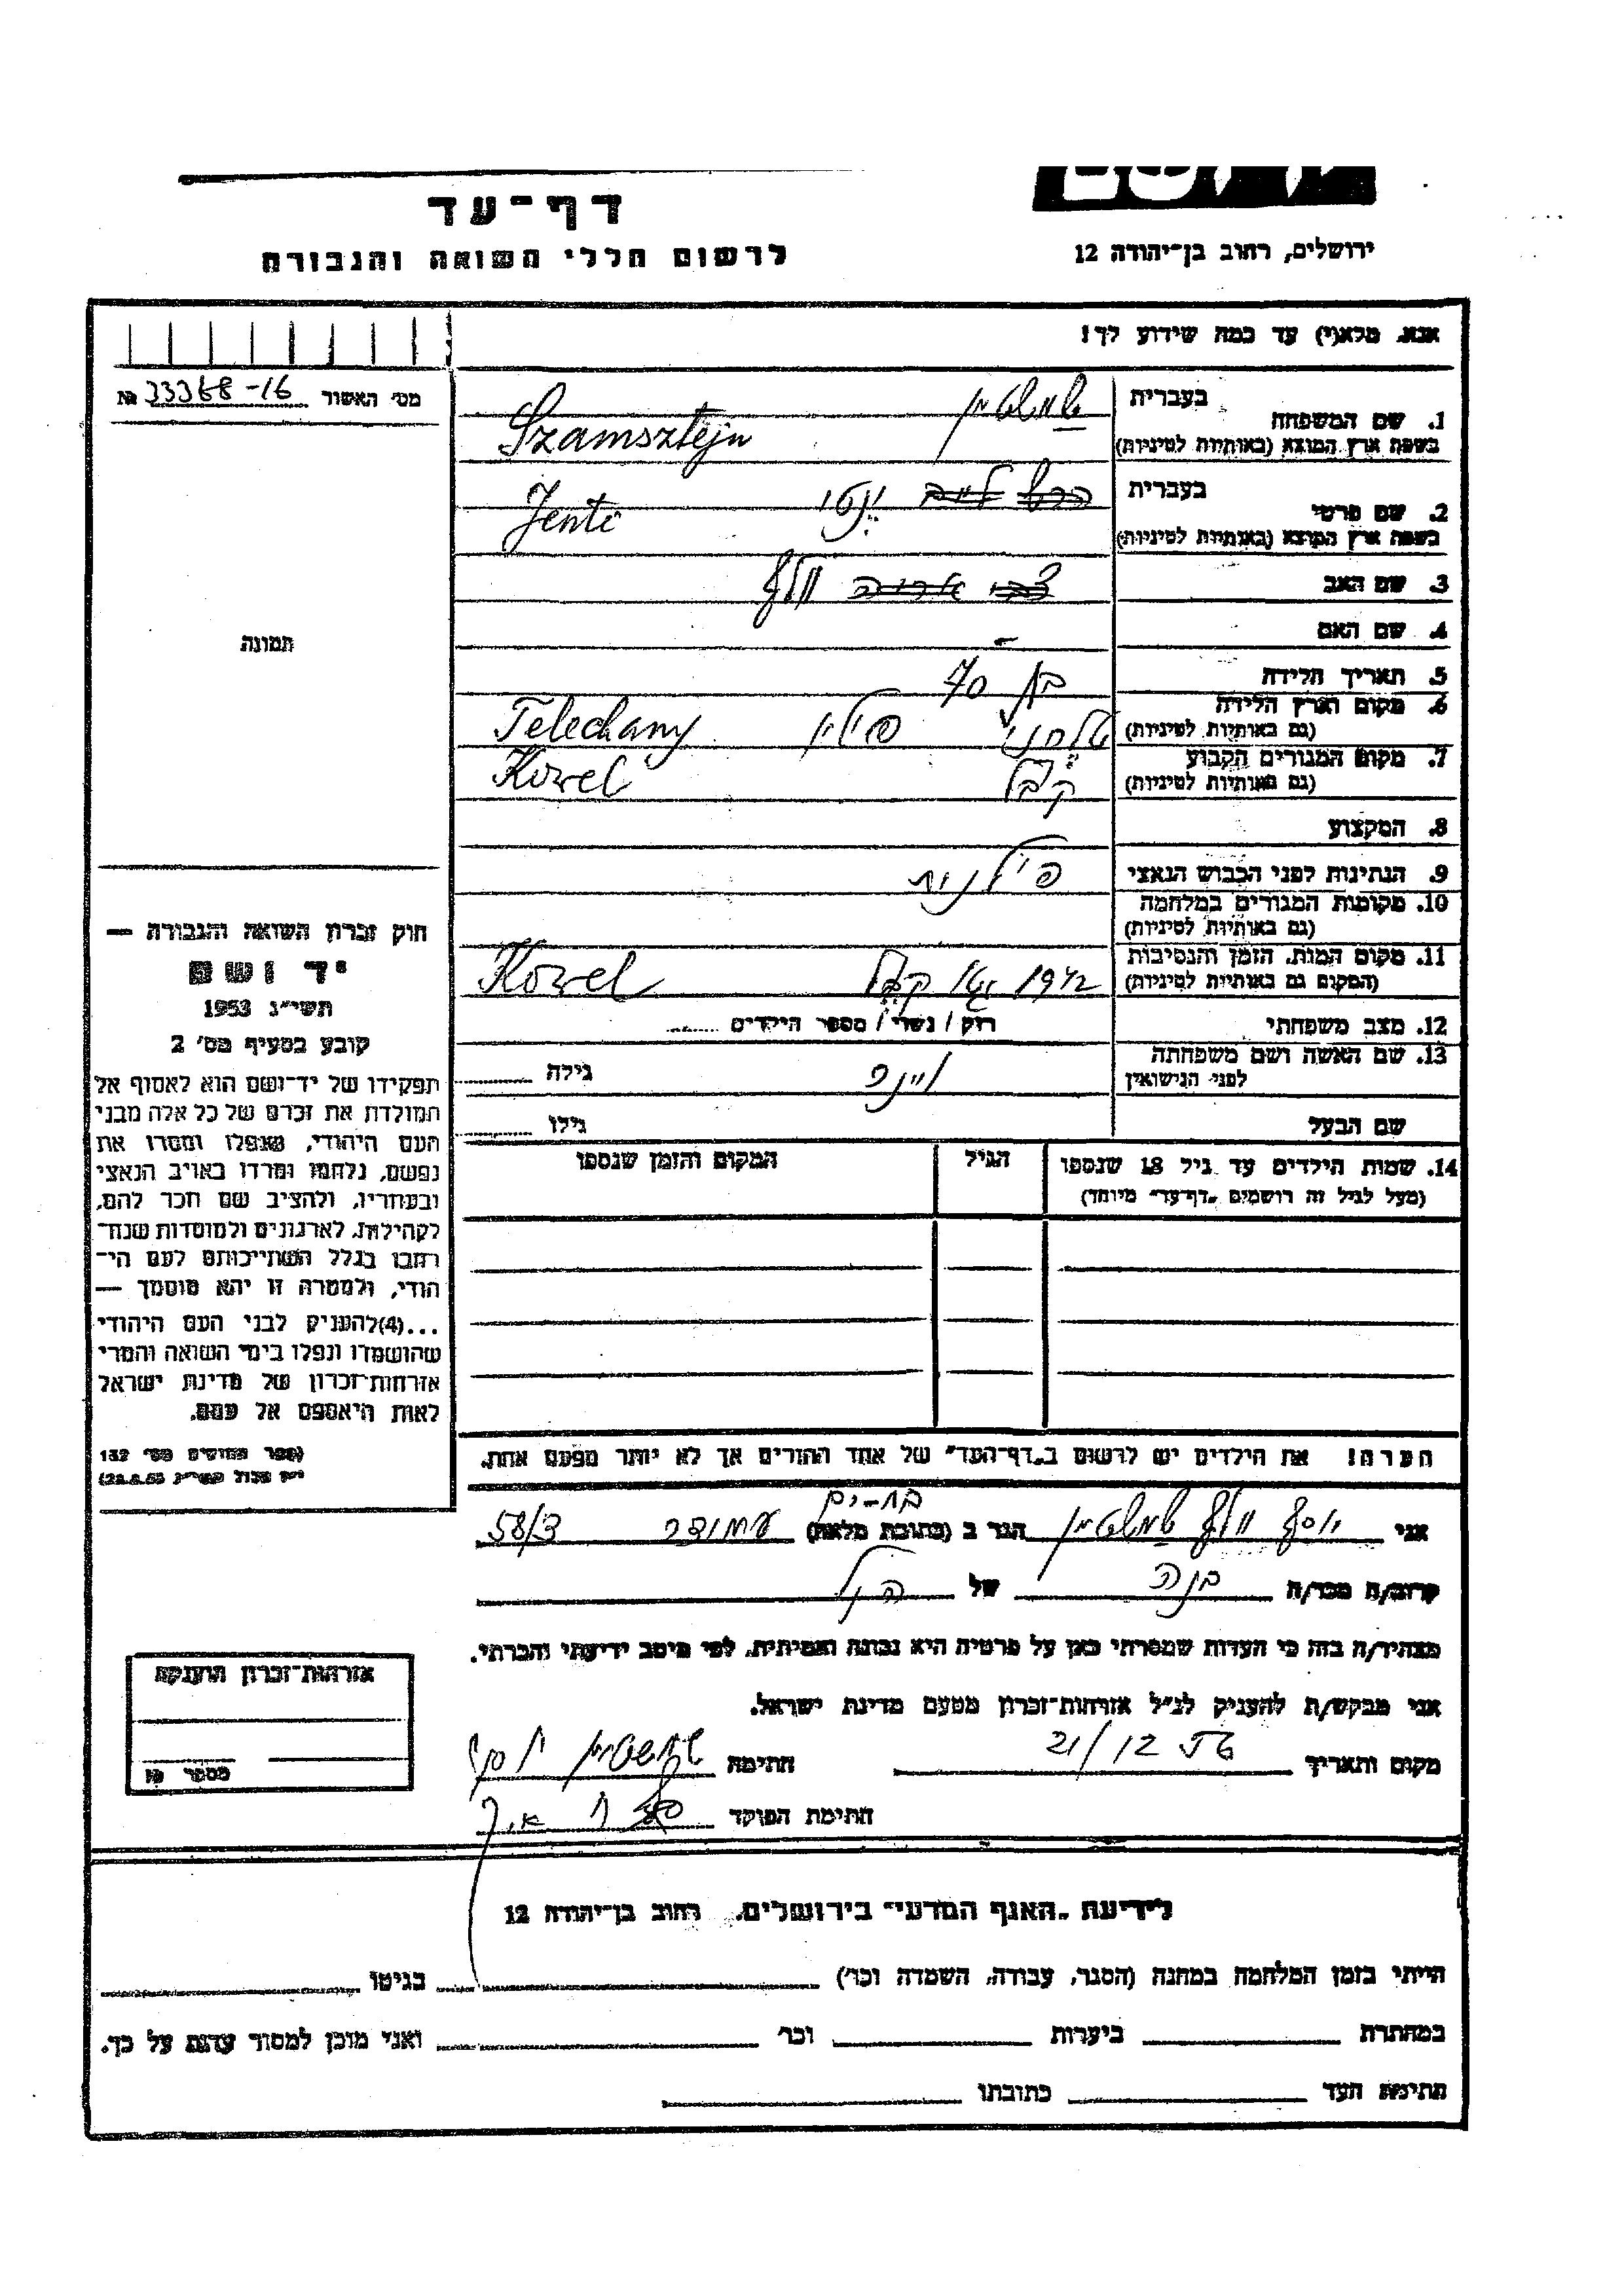 דף-עד
לרשום חללי השואה והגבורה
ירושלים, רחוב בן-יהודה 12
אנא, מלא(י) עד כמה שידוע לך!
מס׳ האשור № 33368-16
1. שם המשפחה
בעברית שמשטיין
בשפת ארץ המוצא (באותיות לטיניות) Szamsztejn
2. שם פרטי
בעברית יענטי
בשפת ארץ המוצא (באותיות לטיניות) Jente
3. שם האב וולף
4. שם האם -
5. תאריך הלידה בת 70
6. מקום וארץ הלידה טלחני פולין Telechany
(גם באותיות לטיניות)
7. מקום המגורים הקבוע קובל Kowel
(גם באותיות לטיניות)
8. המקצוע
9. הנתינות לפני הכבוש הנאצי פולנית
10. מקומות המגורים במלחמה
(גם באותיות לטיניות)
11. מקום המות, הזמן והנסיבות 1942 קובל Kowel
(המקום גם באותיות לטיניות)
12. מצב משפחתי רוק / נשוי / מספר הילדים
13. שם האשה ושם משפחתה גילה
לפני הנישואין
שם הבעל גילו
14. שמות הילדים עד גיל 18 שנספו הגיל המקום והזמן שנספו
(מעל לגיל זה רושמים „דף-עד״ מיוחד)
תמונה
חוק זכרון השואה והגבורה —
יד ושם
תשי״ג 1953
קובע בסעיף מס׳ 2
תפקידו של יד-ושם הוא לאסוף אל
המולדת את זכרם של כל אלה מבני
העם היהודי, שנפלו ומסרו את
נפשם, נלחמו ומרדו באויב הנאצי
ובעוזריו, ולהציב שם וזכר להם,
לקהילות, לארגונים ולמוסדות שנח-
רבו בגלל השתייכותם לעם הי-
הודי, ולמטרה זו יהא מוסמך —
...(4)להעניק לבני העם היהודי
שהושמדו ונפלו בימי השואה והמרי
אזרחות-זכרון של מדינת ישראל
לאות היאספם אל עמם.
(ספר החוקים מס׳ 132
הערה! את הילדים יש לרשום ב„דף-העד״ של אחד ההורים אך לא יותר מפעם אחת.
אני יוסף וולף שמשטיין הגר ב (כתובת מלאה) בת-ים עמידר 58/3
קרוב/ה מכר/ה בנה של הנ״ל
מצהיר/ה בזה כי העדות שמסרתי כאן על פרטיה היא נכונה ואמיתית, לפי מיטב ידיעתי והכרתי.
אני מבקש/ת להעניק לנ״ל אזרחות-זכרון מטעם מדינת ישראל.
מקום ותאריך 21/12 חתימה שמשטיין יוסף
חתימת הפוקד
אזרחות-זכרון הוענקה
מספר №
לידיעת „האגף המדעי״ בירושלים, רחוב בן-יהודה 12
הייתי בזמן המלחמה במחנה (הסגר, עבודה, השמדה וכו׳) בגיטו
במחתרת ביערות וכו׳ ואני מוכן למסור עדות על כך.
חתימת העד כתובתו